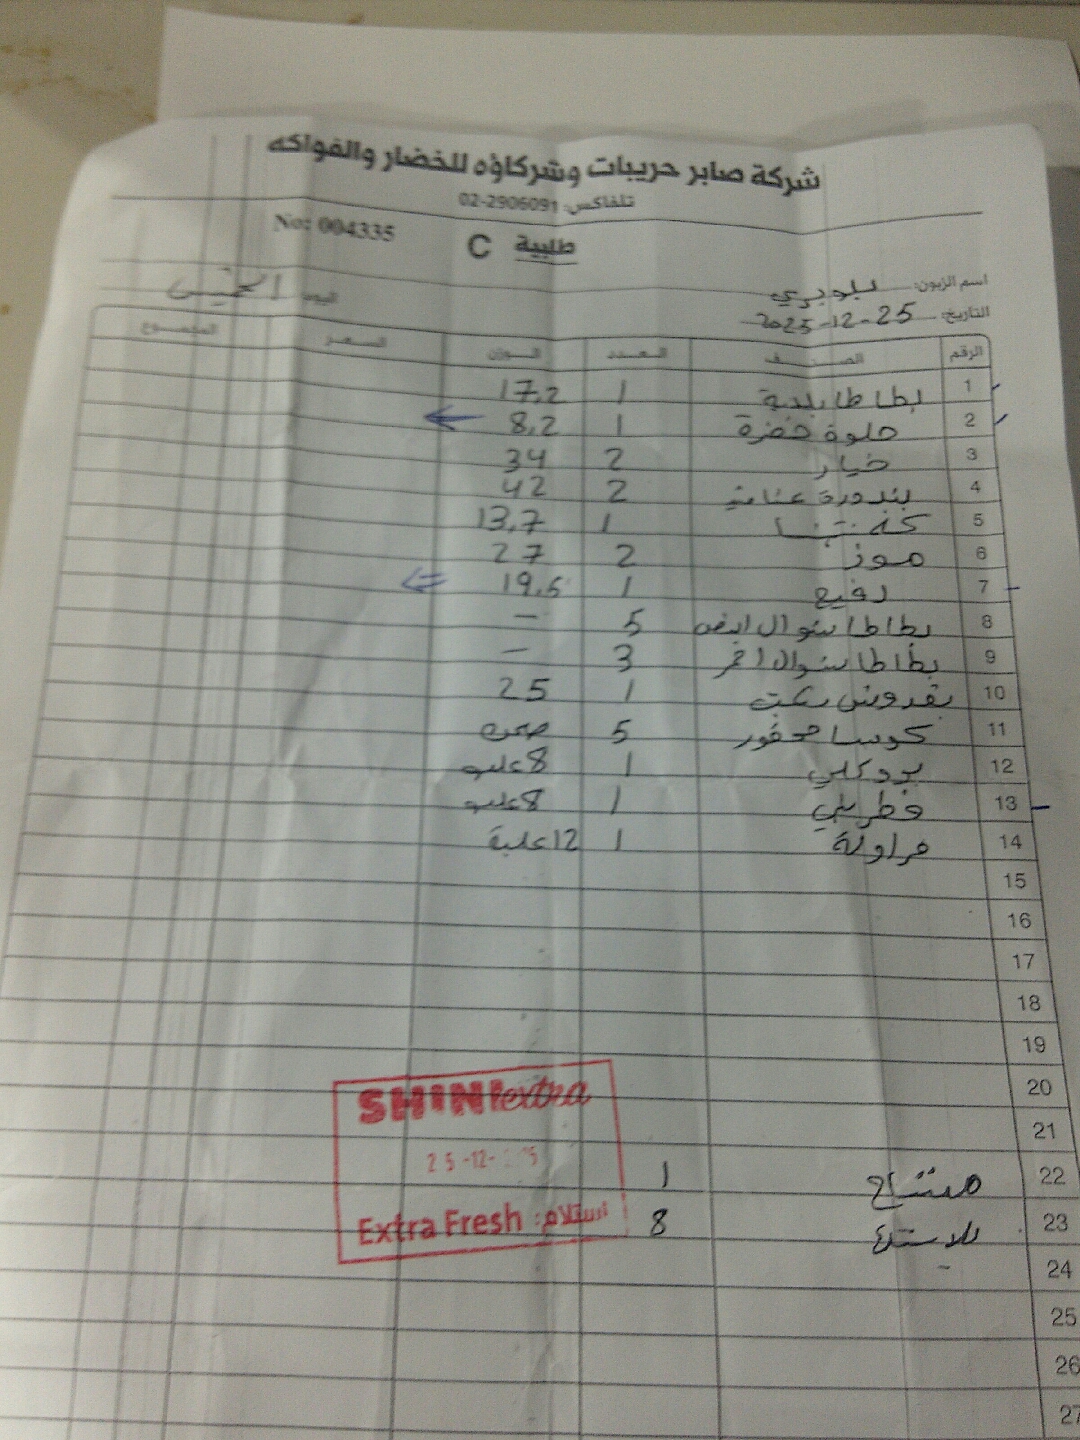 شركة صابر حريبات وشركاؤه للخضار والفواكه
تلفاكس: 02-2906091
No: 004335 طلبية C
اسم الزبون: بلوبري اليوم الخميس
التاريخ: 25-12-2025
الرقم الصنف العدد الوزن السعر المجموع
1 بطاطا بلدية 1 17,2
2 حلوة خضرة 1 8,2
3 خيار 2 34
4 بندورة عناقيد 2 42
5 1 13,7
6 موز 2 27
7 رفيع 1 19,5
8 بطاطا شوال ابيض 5 –
9 بطاطا شوال احمر 3 –
10 بقدونس 1 25
11 كوسا محفور 5 صحن
12 بروكلي 1 8 علب
13 فطر 1 8 علب
14 فراولة 1 12 علبة
15
16
17
18
19
20
21
22 مشتاح 1
23 8
24
25
26
27
SHINI extra
25-12-
Extra Fresh استلام: